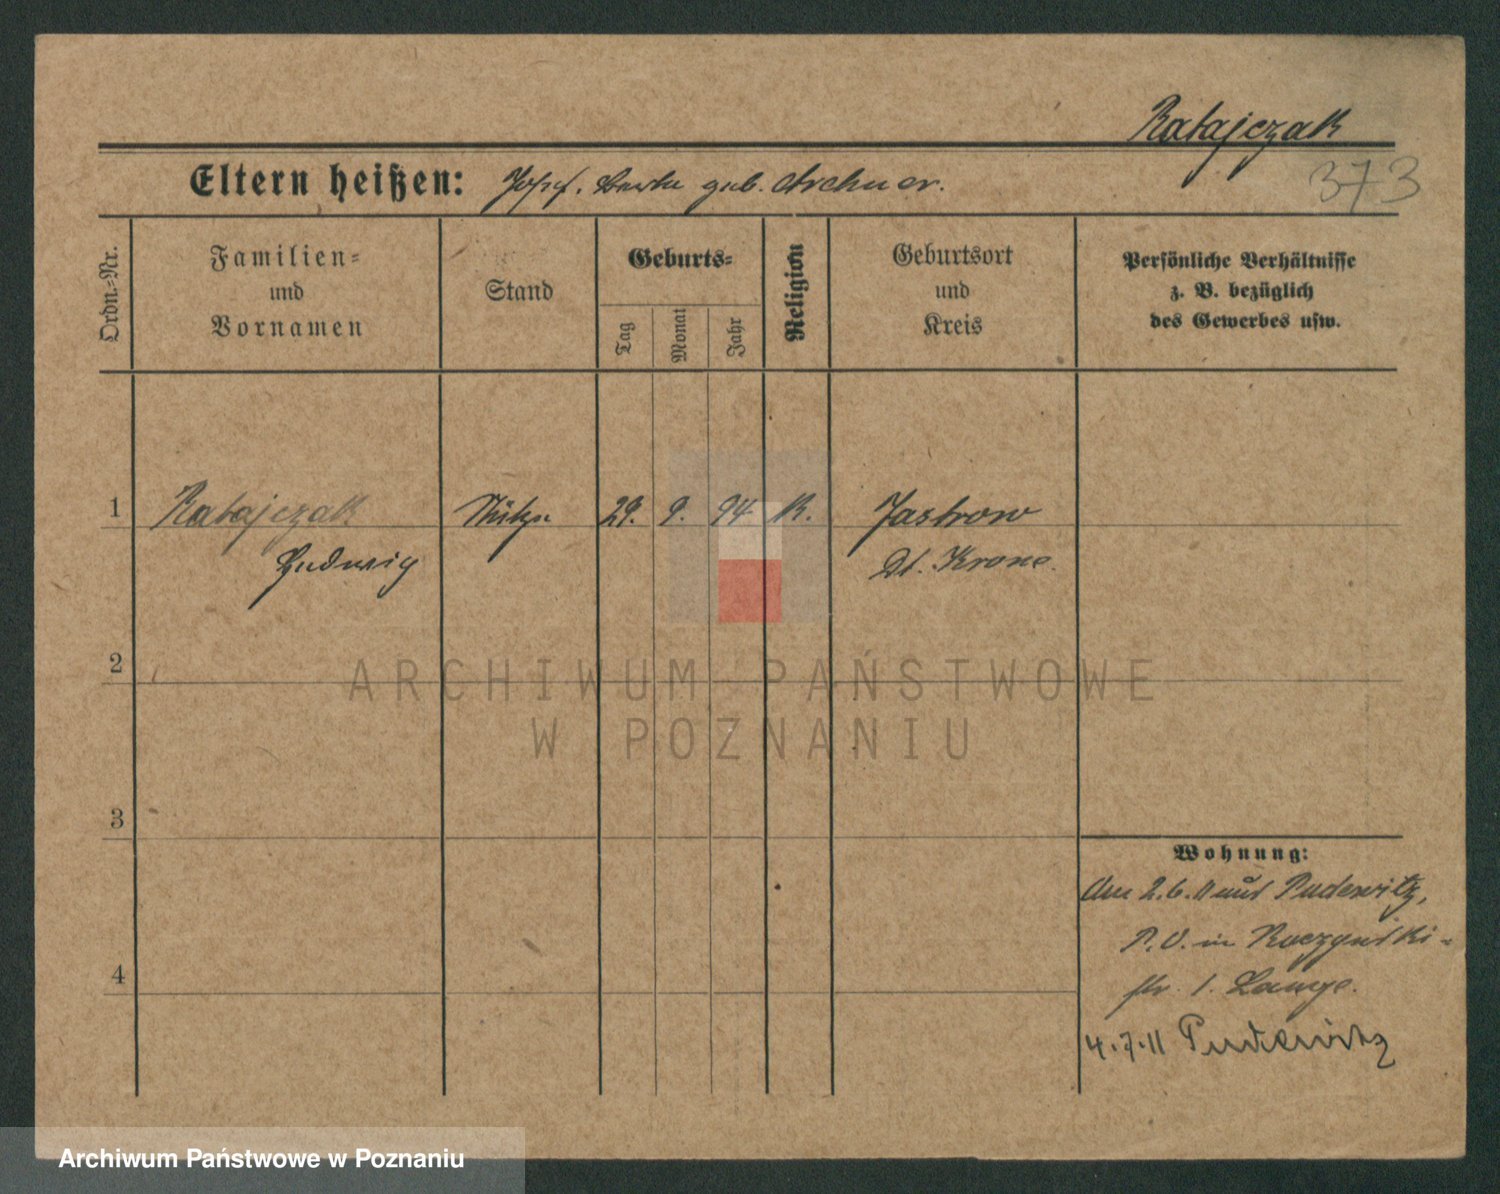 Ratajczak
373
Eltern heißen: Josef, Berta geb. Archner.
Ordn.-Nr.
Familien-
und
Vornamen
Stand
Geburts-
Tag
Monat
Jahr
Religion
Geburtsort
und
Kreis
Persönliche Verhältnisse
z. B. bezüglich
des Gewerbes usw.
1 Ratajczak 29. 9. 94 K. Jastrow
Ludwig Dt. Krone.
2
3
4
Wohnung:
Am 2.6.11 aus Pudewitz,
P. O. in Raczynski-
str. 1. Lange.
4.7.11 Pudewitz
ARCHIWUM PAŃSTWOWE
W POZNANIU
Archiwum Państwowe w Poznaniu